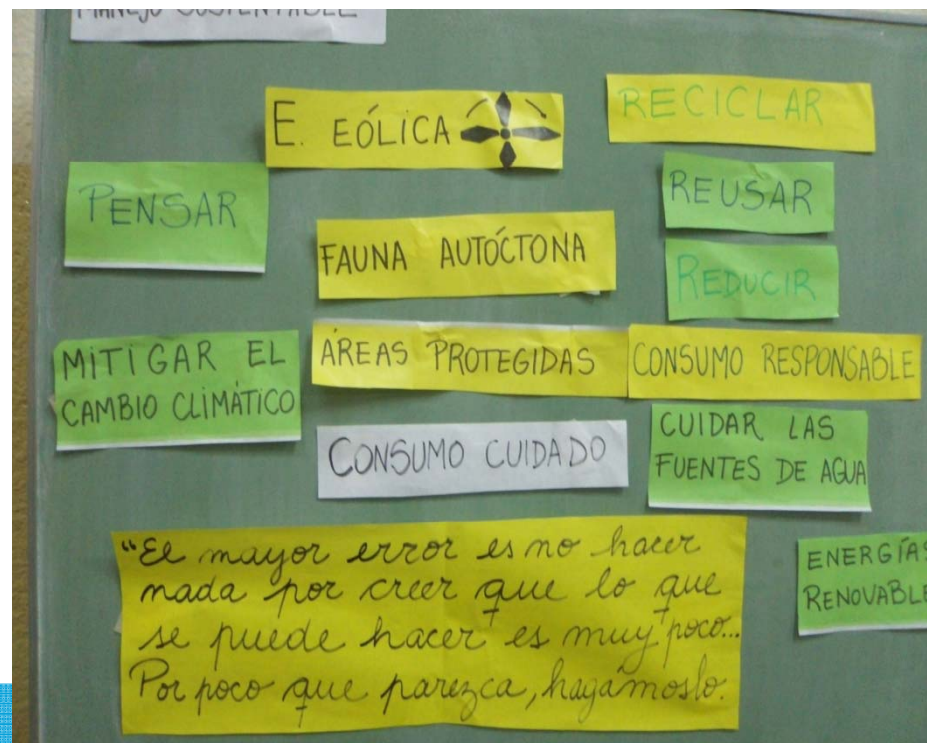 MANEJO SUSTENTABLE
E. EÓLICA
RECICLAR
PENSAR
REUSAR
FAUNA AUTÓCTONA
REDUCIR
MITIGAR EL
CAMBIO CLIMÁTICO
ÁREAS PROTEGIDAS
CONSUMO RESPONSABLE
CONSUMO CUIDADO
CUIDAR LAS
FUENTES DE AGUA
"El mayor error es no hacer
nada por creer que lo que
se puede hacer es muy poco...
Por poco que parezca, hagámoslo.
ENERGÍAS
RENOVABLE